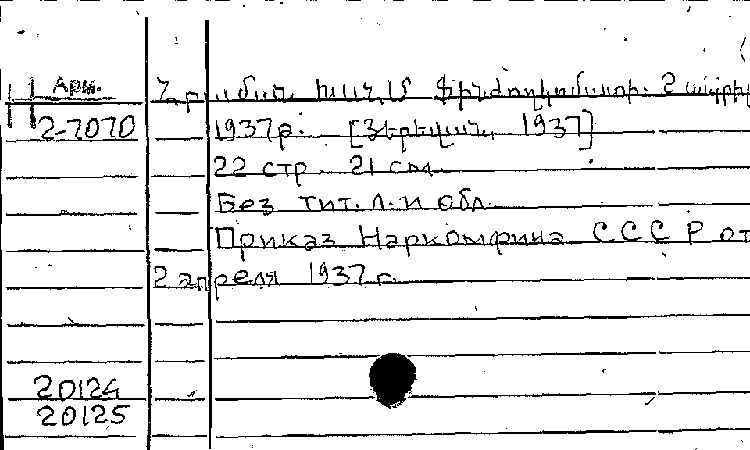 Арм.
2-7070
Հրաման ԽՍՀՄ Ֆինժողկոմատի. 2 ապրիլ
1937թ. [Յերևան, 1937]
22 стр. 21 см.
Без тит. л. и обл.
Приказ Наркомфина СССР от
2 апреля 1937 г.
20124
20125